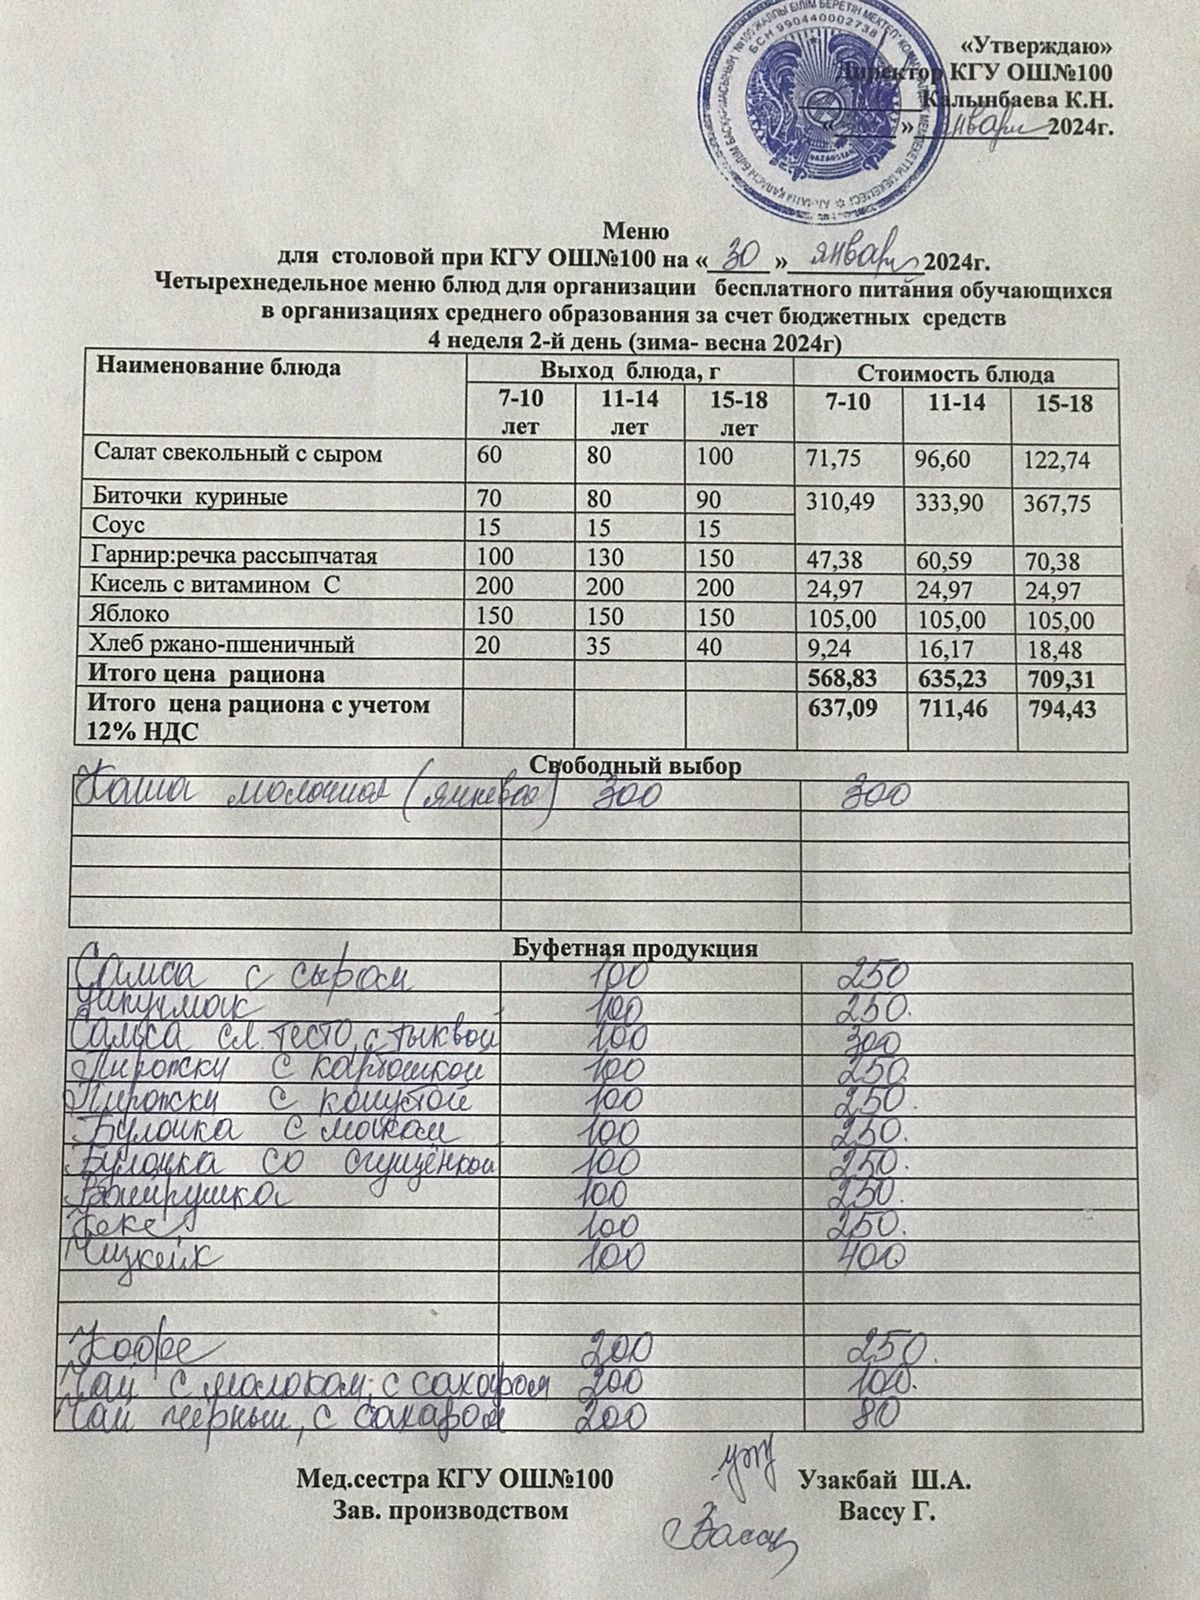 «Утверждаю»
Директор КГУ ОШ№100
Калынбаева К.Н.
« » января 2024г.
БСН 990440002738
QAZAQSTAN
Меню
для столовой при КГУ ОШ№100 на « 30 » января 2024г.
Четырехнедельное меню блюд для организации бесплатного питания обучающихся
в организациях среднего образования за счет бюджетных средств
4 неделя 2-й день (зима- весна 2024г)
Наименование блюда Выход блюда, г Стоимость блюда
7-10 лет 11-14 лет 15-18 лет 7-10 11-14 15-18
Салат свекольный с сыром 60 80 100 71,75 96,60 122,74
Биточки куриные 70 80 90 310,49 333,90 367,75
Соус 15 15 15
Гарнир:речка рассыпчатая 100 130 150 47,38 60,59 70,38
Кисель с витамином С 200 200 200 24,97 24,97 24,97
Яблоко 150 150 150 105,00 105,00 105,00
Хлеб ржано-пшеничный 20 35 40 9,24 16,17 18,48
Итого цена рациона 568,83 635,23 709,31
Итого цена рациона с учетом 637,09 711,46 794,43
12% НДС
Свободный выбор
Каша молочная 300 300
Буфетная продукция
Самса с сыром 100 250
Учпучмак 100 250.
Самса сл. тесто, с тыквой 100 300
Пирожки с картошкой 100 250.
Пирожки с капустой 100 250.
Булочка с маком 100 250.
Булочка со сгущёнкой 100 250.
Ватрушка 100 250.
Кекс 100 250.
Чизкейк 100 400
Кофе 200 250.
Чай с молоком, с сахаром 200 100.
Чай черный, с сахаром 200 80
Мед.сестра КГУ ОШ№100 Узакбай Ш.А.
Зав. производством Вассу Г.